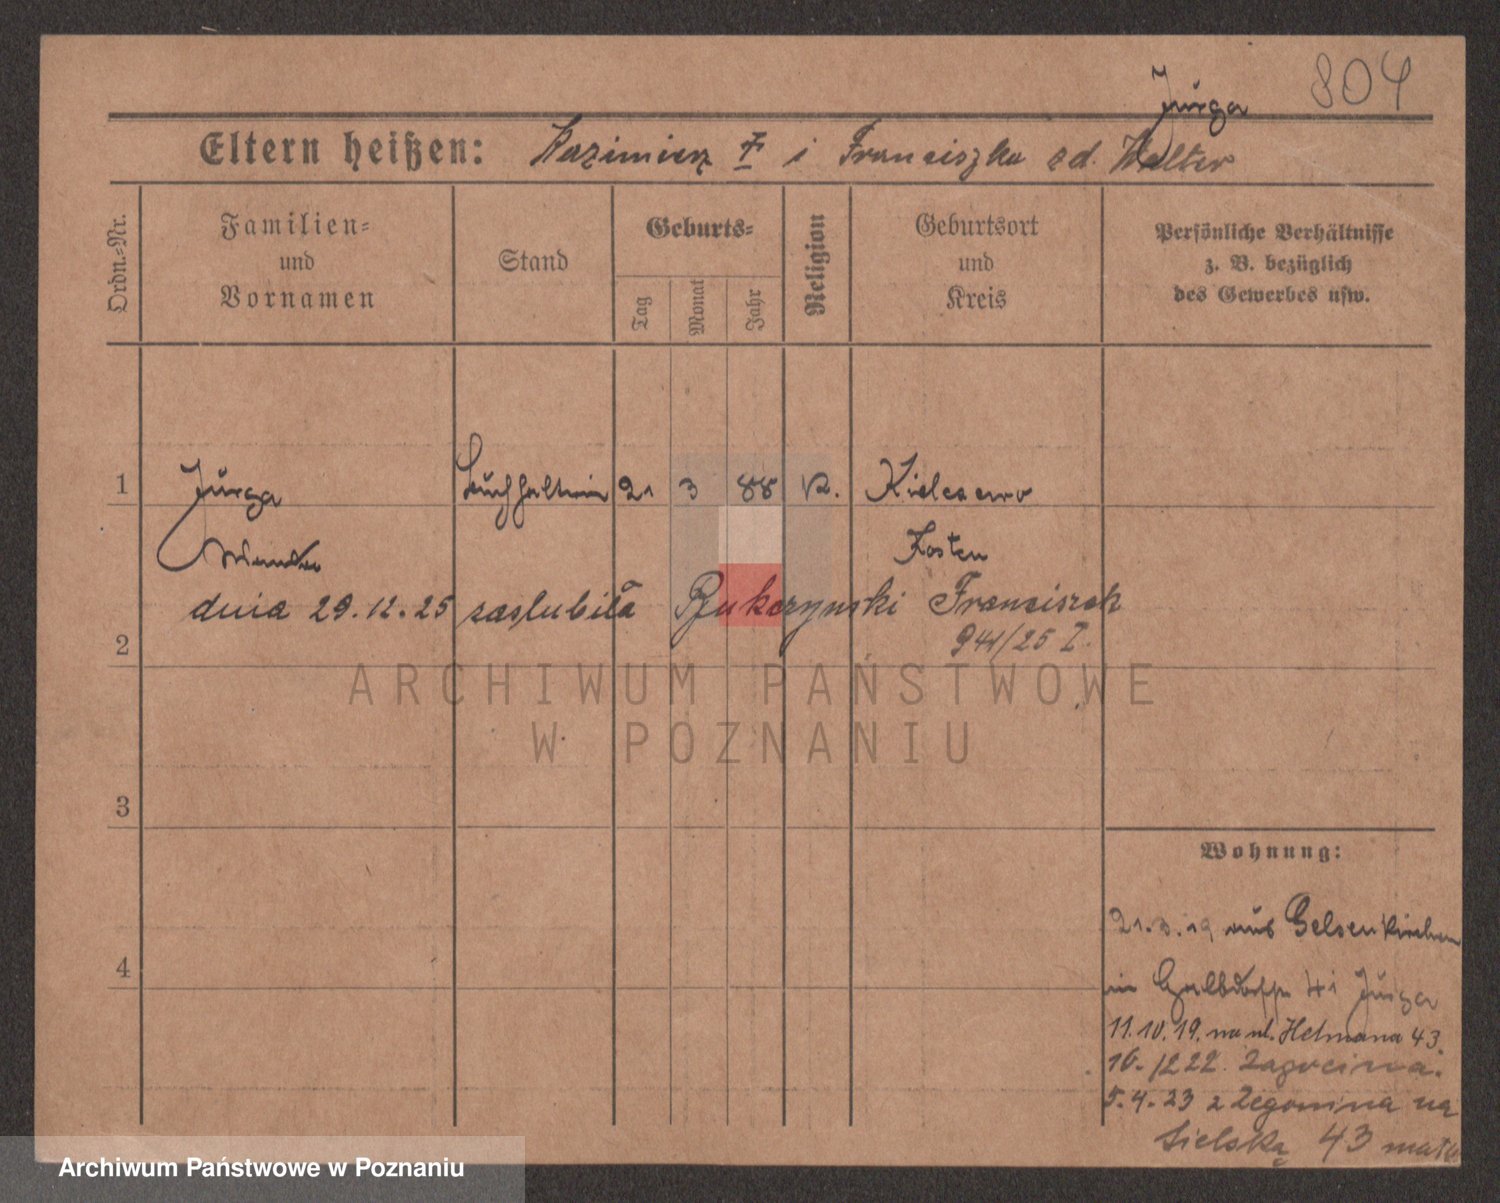 804
Jurga
Eltern heißen: Kazimierz † i Franciszka zd. Walter
Ordn.-Nr.
Familien-
und
Vornamen
Stand
Geburts-
Tag
Monat
Jahr
Religion
Geburtsort
und
Kreis
Persönliche Verhältnisse
z. B. bezüglich
des Gewerbes usw.
1
Jurga
Buchhalterin
21
3
88
K.
Kielczewo
Kosten
dnia 29.12.25 zaślubiła Franciszek
941/25 I.
2
3
4
Wohnung:
21.3.19 aus Gelsenkirchen
in 41 Jurga
11.10.19. na ul. Hetmana 43.
16. 12 22.
5.4.23 z na
Sielską 43
ARCHIWUM PAŃSTWOWE
W POZNANIU
Archiwum Państwowe w Poznaniu